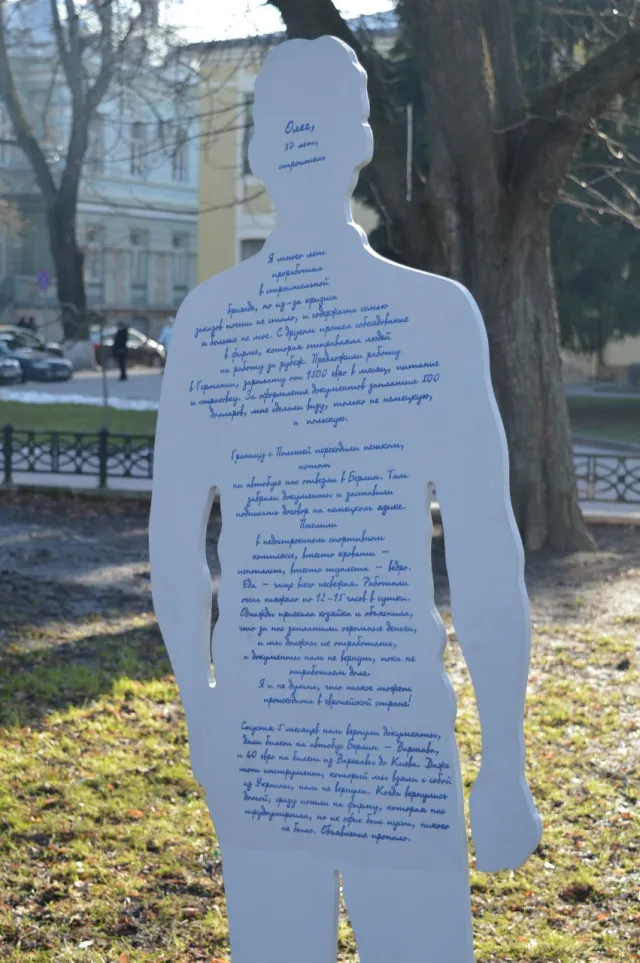 Олег,
37 лет,
строитель
Я много лет
проработал
в строительной
бригаде, но из-за кризиса
заказов почти не стало, и содержать семью
я больше не мог. С другом прошел собеседование
в фирме, которая отправляла людей
на работу за рубеж. Предложили работу
в Германии, зарплату от 1500 евро в месяц, питание
и страховку. За оформление документов заплатил 500
долларов, мне сделали визу, только не немецкую,
а польскую.
Границу с Польшей переходили пешком,
потом
на автобусе нас отвезли в Берлин. Там
забрали документы и заставили
подписать договор на немецком языке.
Поселили
в недостроенном спортивном
комплексе, вместо кровати —
пенопласт, вместо туалета — ведро.
Еда — чаще всего несвежая. Работали
очень тяжело по 12-15 часов в сутки.
Однажды приехала хозяйка и объяснила,
что за нас заплатили огромные деньги,
и мы должны их отработать,
а документы нам не вернут, пока не
отработаем долг.
Я и не думал, что такое может
происходить в европейской стране!
Спустя 5 месяцев нам вернули документы,
дали билет на автобус Берлин — Варшава,
и 60 евро на билет из Варшавы до Киева. Даже
тот инструмент, который мы взяли с собой
из Украины, нам не вернули. Когда вернулись
домой, сразу пошли на фирму, которая нас
трудоустроила, но их офис был пуст, никого
не было. Объявление пропало.